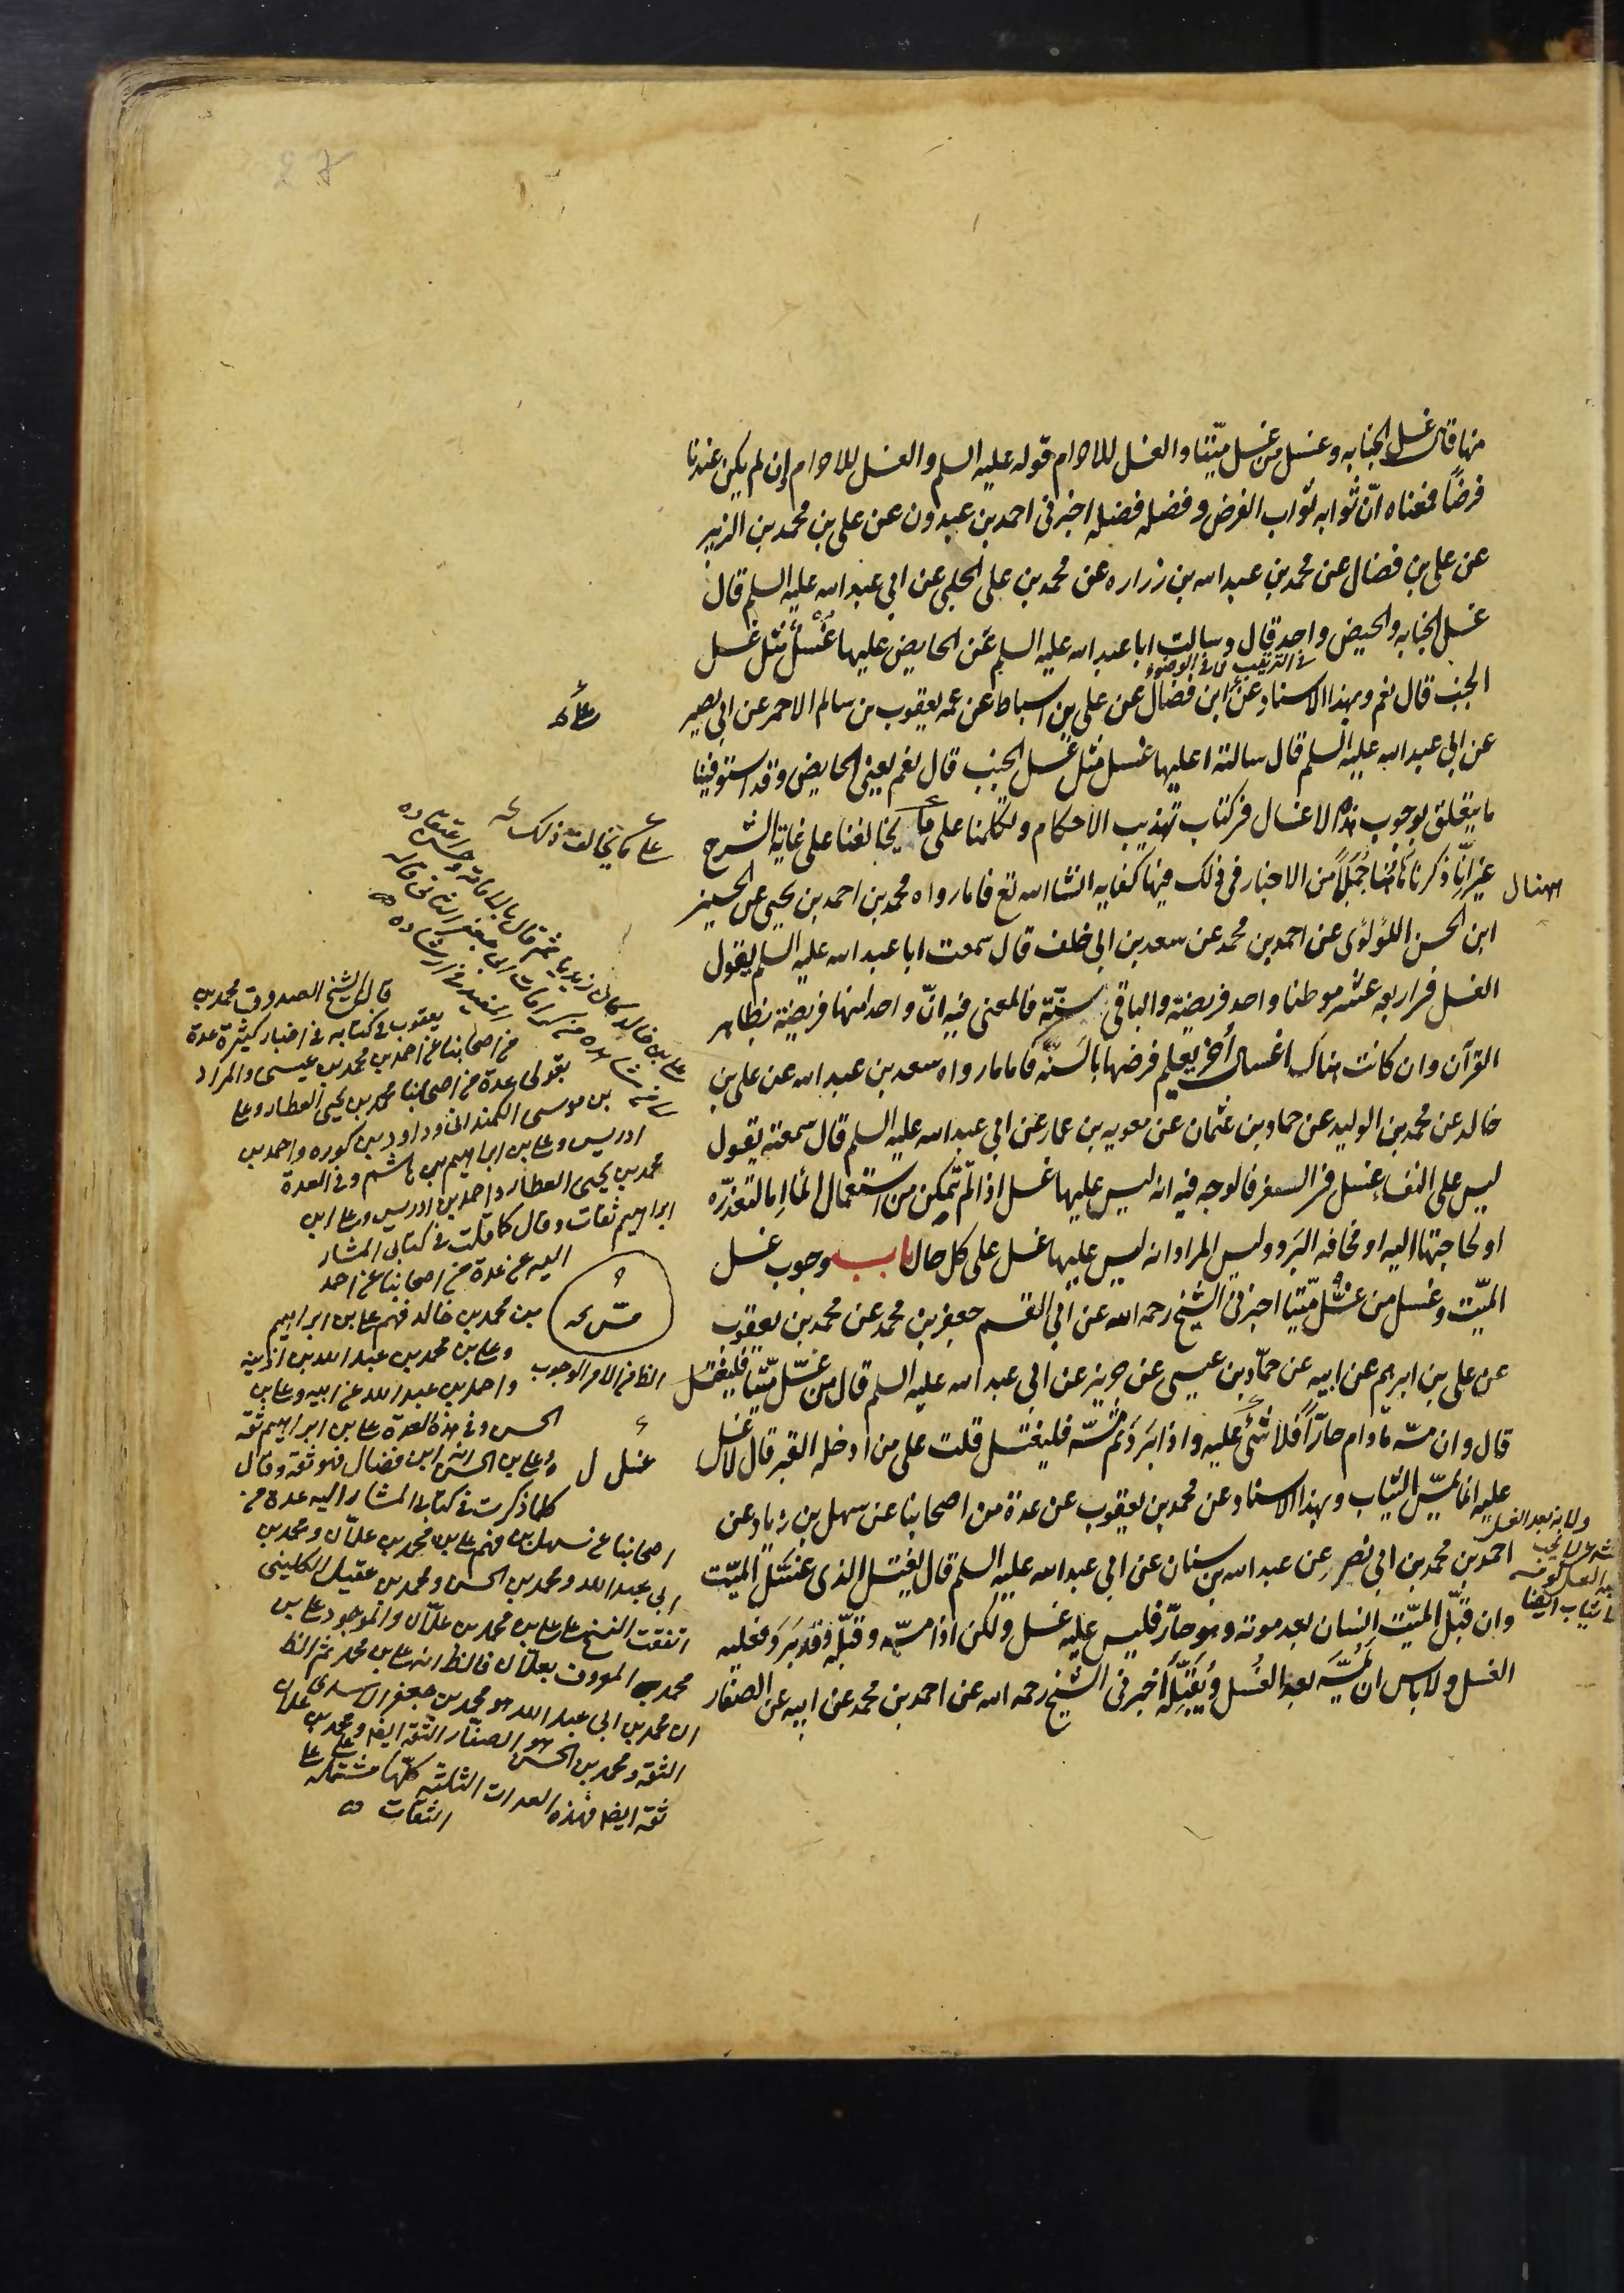 منها قال غسل الجنابه وغسل من غسل ميّتا والغسل للاحرام قوله عليه السلم والغسل للاحرام وان لم يكن عندنا
فرضًا فمعناه انّ ثوابه ثواب الفرض وفضله فضله اخبرنى احمد بن عبدون عن على بن محمد بن الزبير
عن على بن فضال عن محمد بن عبد الله بن زراره عن محمد بن على الحلبى عن ابى عبد الله عليه السلم قال
غسل الجنابه والحيض واحد قال وسالت ابا عبد الله عليه السلم عن الحايض عليها غسل مثل غسل
فى الترتيب لا فى الوضوء
الجنب قال نعم وبهذا الاسناد عن ابن فضال عن على بن اسباط عن عمه يعقوب بن سالم الاحمر عن ابى بصير
عن ابى عبد الله عليه السلم قال سالته اعليها غسل مثل غسل الجنب قال نعم يعنى الحايض وقد استوفينا
ما يتعلق بوجوب هذه الاغسال فى كتاب تهذيب الاحكام وتكلمنا على ما يخالفنا على غاية الشرح
غير انّا ذكرنا هاهنا جُمَلًا من الاخبار فى ذلك فيها كفايه انشا الله تع فاما رواه محمد بن احمد بن يحيى عن الحسين
ابن الحسن اللؤلؤى عن احمد بن محمد عن سعد بن ابى خلف قال سمعت ابا عبد الله عليه السلم يقول
الغسل فى اربعه عشر موطنا واحد فريضة والباقى سنّة فالمعنى فيه انّ واحدا منها فريضة بظاهر
القرآن وان كانت هناك اغسال أُخر يعلم فرضها بالسّنه فاما ما رواه سعد بن عبد الله عن على بن
خالد عن محمد بن الوليد عن حماد بن عثمان عن معويه بن عمار عن ابى عبد الله عليه السلم قال سمعته يقول
ليس على النفساء غسل فى السفر فالوجه فيه انه ليس عليها غسل اذا لم تتمكن من استعمال الماء اما لتعذره
او لحاجتها اليه او مخافه البرد وليس المراد انه ليس عليها غسل على كل حال باب وجوب غسل
الميّت وغسل من غسّل ميّتا اخبرنى الشيخ رحمه الله عن ابى القسم جعفر بن محمد عن محمد بن يعقوب
عن على بن ابرهيم عن ابيه عن حمّاد بن عيسى عن حريز عن ابى عبد الله عليه السلم قال من غسّل ميّتا فليغتسل
قال وان مسّه مادام حارّا فلا شىء عليه واذا بَرَدَ ثم مسّه فليغتسل قلت على من ادخله القبر قال لا غسل
عليه انما يمسّ الثياب وبهذا الاسناد عن محمد بن يعقوب عن عدة من اصحابنا عن سهل بن زياد عن
احمد بن محمد بن ابى نصر عن عبد الله بن سنان عن ابى عبد الله عليه السلم قال يغتسل الذى غسّل الميّت
وان قبّل الميّت انسان بعد موته وهو حارّ فليس عليه غسل ولكن اذا مسّه وقبّله وقد بَرَدَ فعليه
الغسل ولا باس ان يمسّه بعد الغُسل ويُقبّله أخبرنى الشيخ رحمه الله عن احمد بن محمد عن ابيه عن الصفار
على ما يخالف ذلك
على بن خالد كان زيديا ثم قال بالامامة وحسن اعتقاده
قال الشيخ الصدوق محمد بن
يعقوب فى كتابه فى اخبار كثيرة عدة
من اصحابنا عن احمد بن محمد بن عيسى والمراد
بقولى عدة من اصحابنا محمد بن يحيى العطار وعلى
بن موسى الكمندانى وداود بن كوره واحمد بن
ادريس وعلى بن ابراهيم بن هاشم وفى العدة
محمد بن يحيى العطار واحمد بن ادريس وعلى بن
ابراهيم ثقات وقال كلما قلت فى كتابى المشار
اليه عن عدة من اصحابنا عن احمد
بن محمد بن خالد فهم على بن ابراهيم
وعلى بن محمد بن عبد الله بن اذينه
واحمد بن عبد الله عن ابيه وعلى بن
الحسن وفى هذه العدة على بن ابراهيم ثقه
وعلى بن الحسن ابن فضال فهو ثقه وقال
كلما ذكرت فى كتابى المشار اليه عدة من
اصحابنا عن سهل بن فهم على بن محمد بن علّان ومحمد بن
ابى عبد الله ومحمد بن الحسن ومحمد بن عقيل الكلينى
اتفقت النسخ على على بن محمد بن علّان والموجود على بن
محمد المعروف بعلّان فالظ انه على بن محمد ثم الظ
ان محمد بن ابى عبد الله هو محمد بن جعفر الاسدى
الثقه ومحمد بن الحسن هو الصفّار الثقه ايضا ومحمد بن
ثقه ايضا فهذه العدات الثلثه كلّها مشتمله على
الثقات
الظ من الامر الوجوب
غسل ل
ولا به بعد الغسل